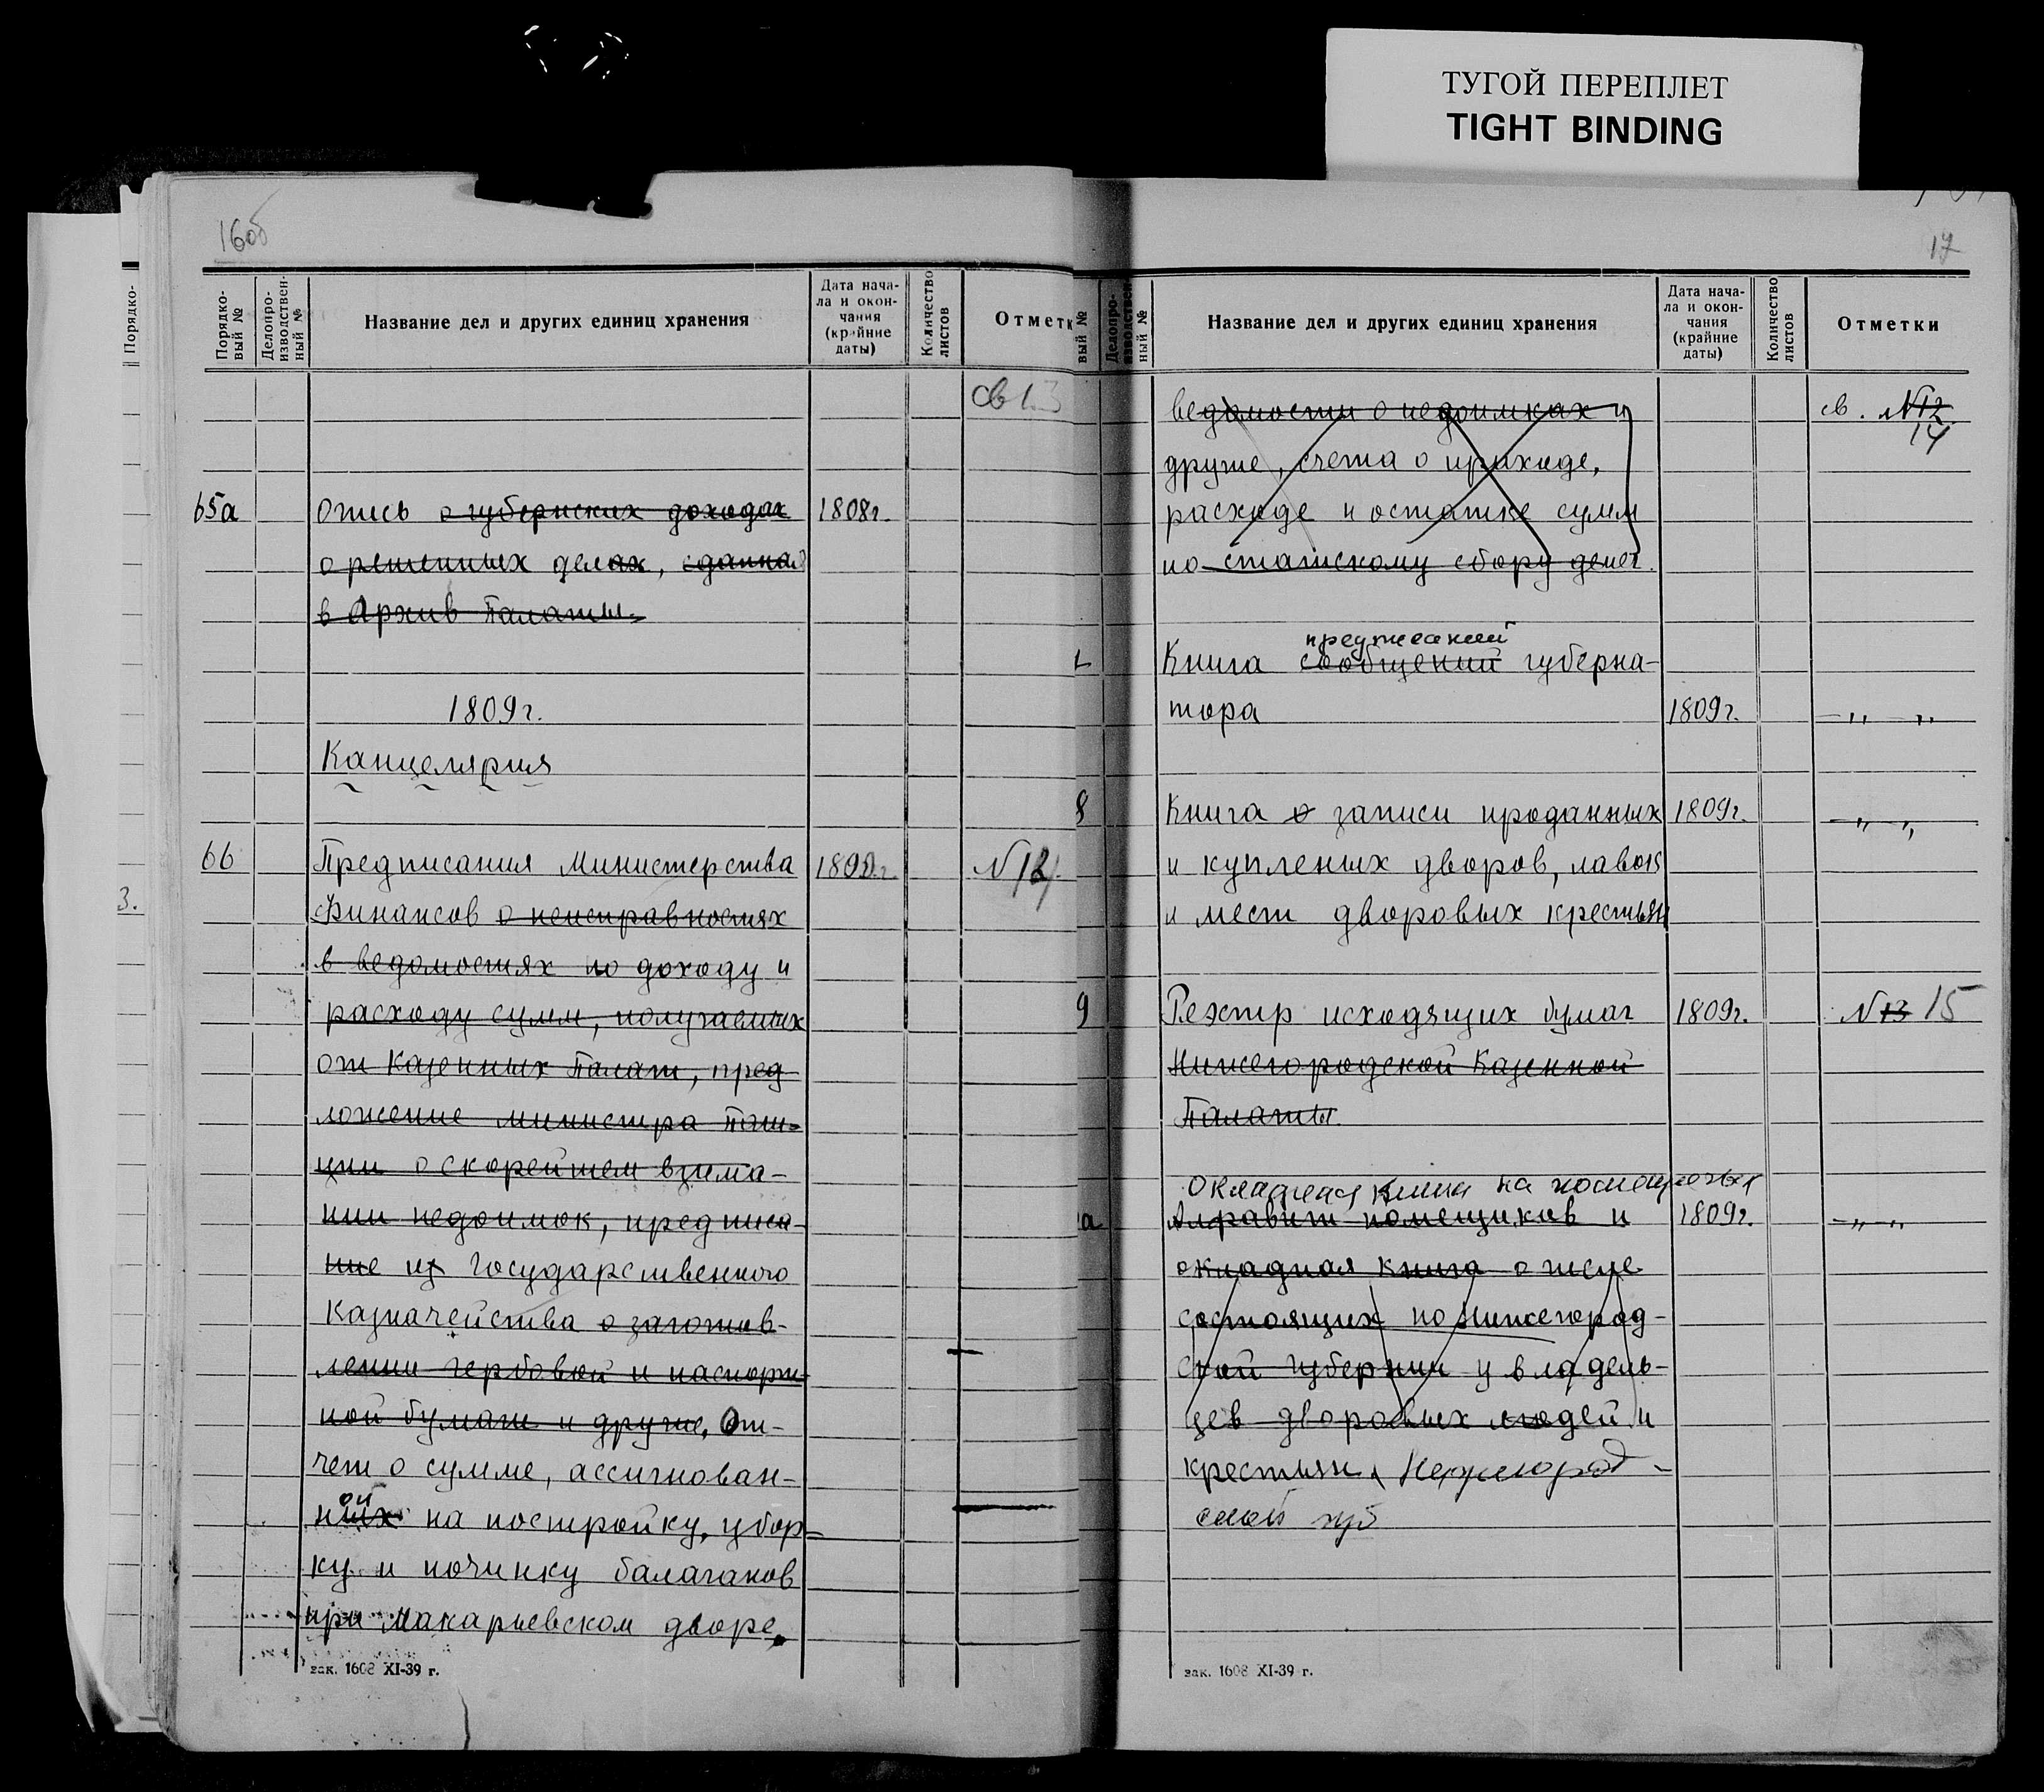 ТУГОЙ ПЕРЕПЛЕТ
TIGHT BINDING
16об
Порядко-
Порядко-
вый №
Делопро-
изводствен-
ный №
Название дел и других единиц хранения
Дата нача-
ла и окон-
чания
(крайние
даты)
Количество
листов
Отметк
св 13
65а опись о губернских доходах 1808г.
о решенных делах, сданная
в Архив Палаты.
1809г.
Канцелярия
66 Предписания Министерства 1809г. N 12
Финансов о неисправностях
в ведомостях по доходу и
расходу сумм, получаемых
от Казенных Палат, пред-
ложение министра Поли-
ции о скорейшем взима-
нии недоимок, предписа-
ние из Государственного
Казначейства о заготов-
лении гербовой и паспорт-
ной бумаги и другие. От-
чет о сумме, ассигнован-
ной на постройку, убор-
ку и починку балаганов
при Макарьевском дворе,
зак. 1608 XI-39 г.
3.
17
вый №
Делопро-
изводствен-
ный №
Название дел и других единиц хранения
Дата нача-
ла и окон-
чания
(крайние
даты)
Количество
листов
Отметки
ведомости о недоимках и св. N 12
14
другие, счета о приходе,
расходе и остатке сумм
по статскому сбору денег.
предписаний
Книга сообщений губерна-
тора 1809г. — „ — „
8 Книга о записи проданных 1809г. — „ — „
и купленых дворов, лавок
и мест дворовых крестьян
9 Реэстр исходящих бумаг 1809г. N 13 15
Нижегородской Казенной
Палаты.
окладная книга на помещичьих
а Алфавит помещиков и 1809г. — „ — „
окладная книга о числе
состоящих по Нижегород-
ской губернии у владель-
цев дворовых людей и
крестьян Нижегород-
ской губ
зак. 1608 XI-39 г.